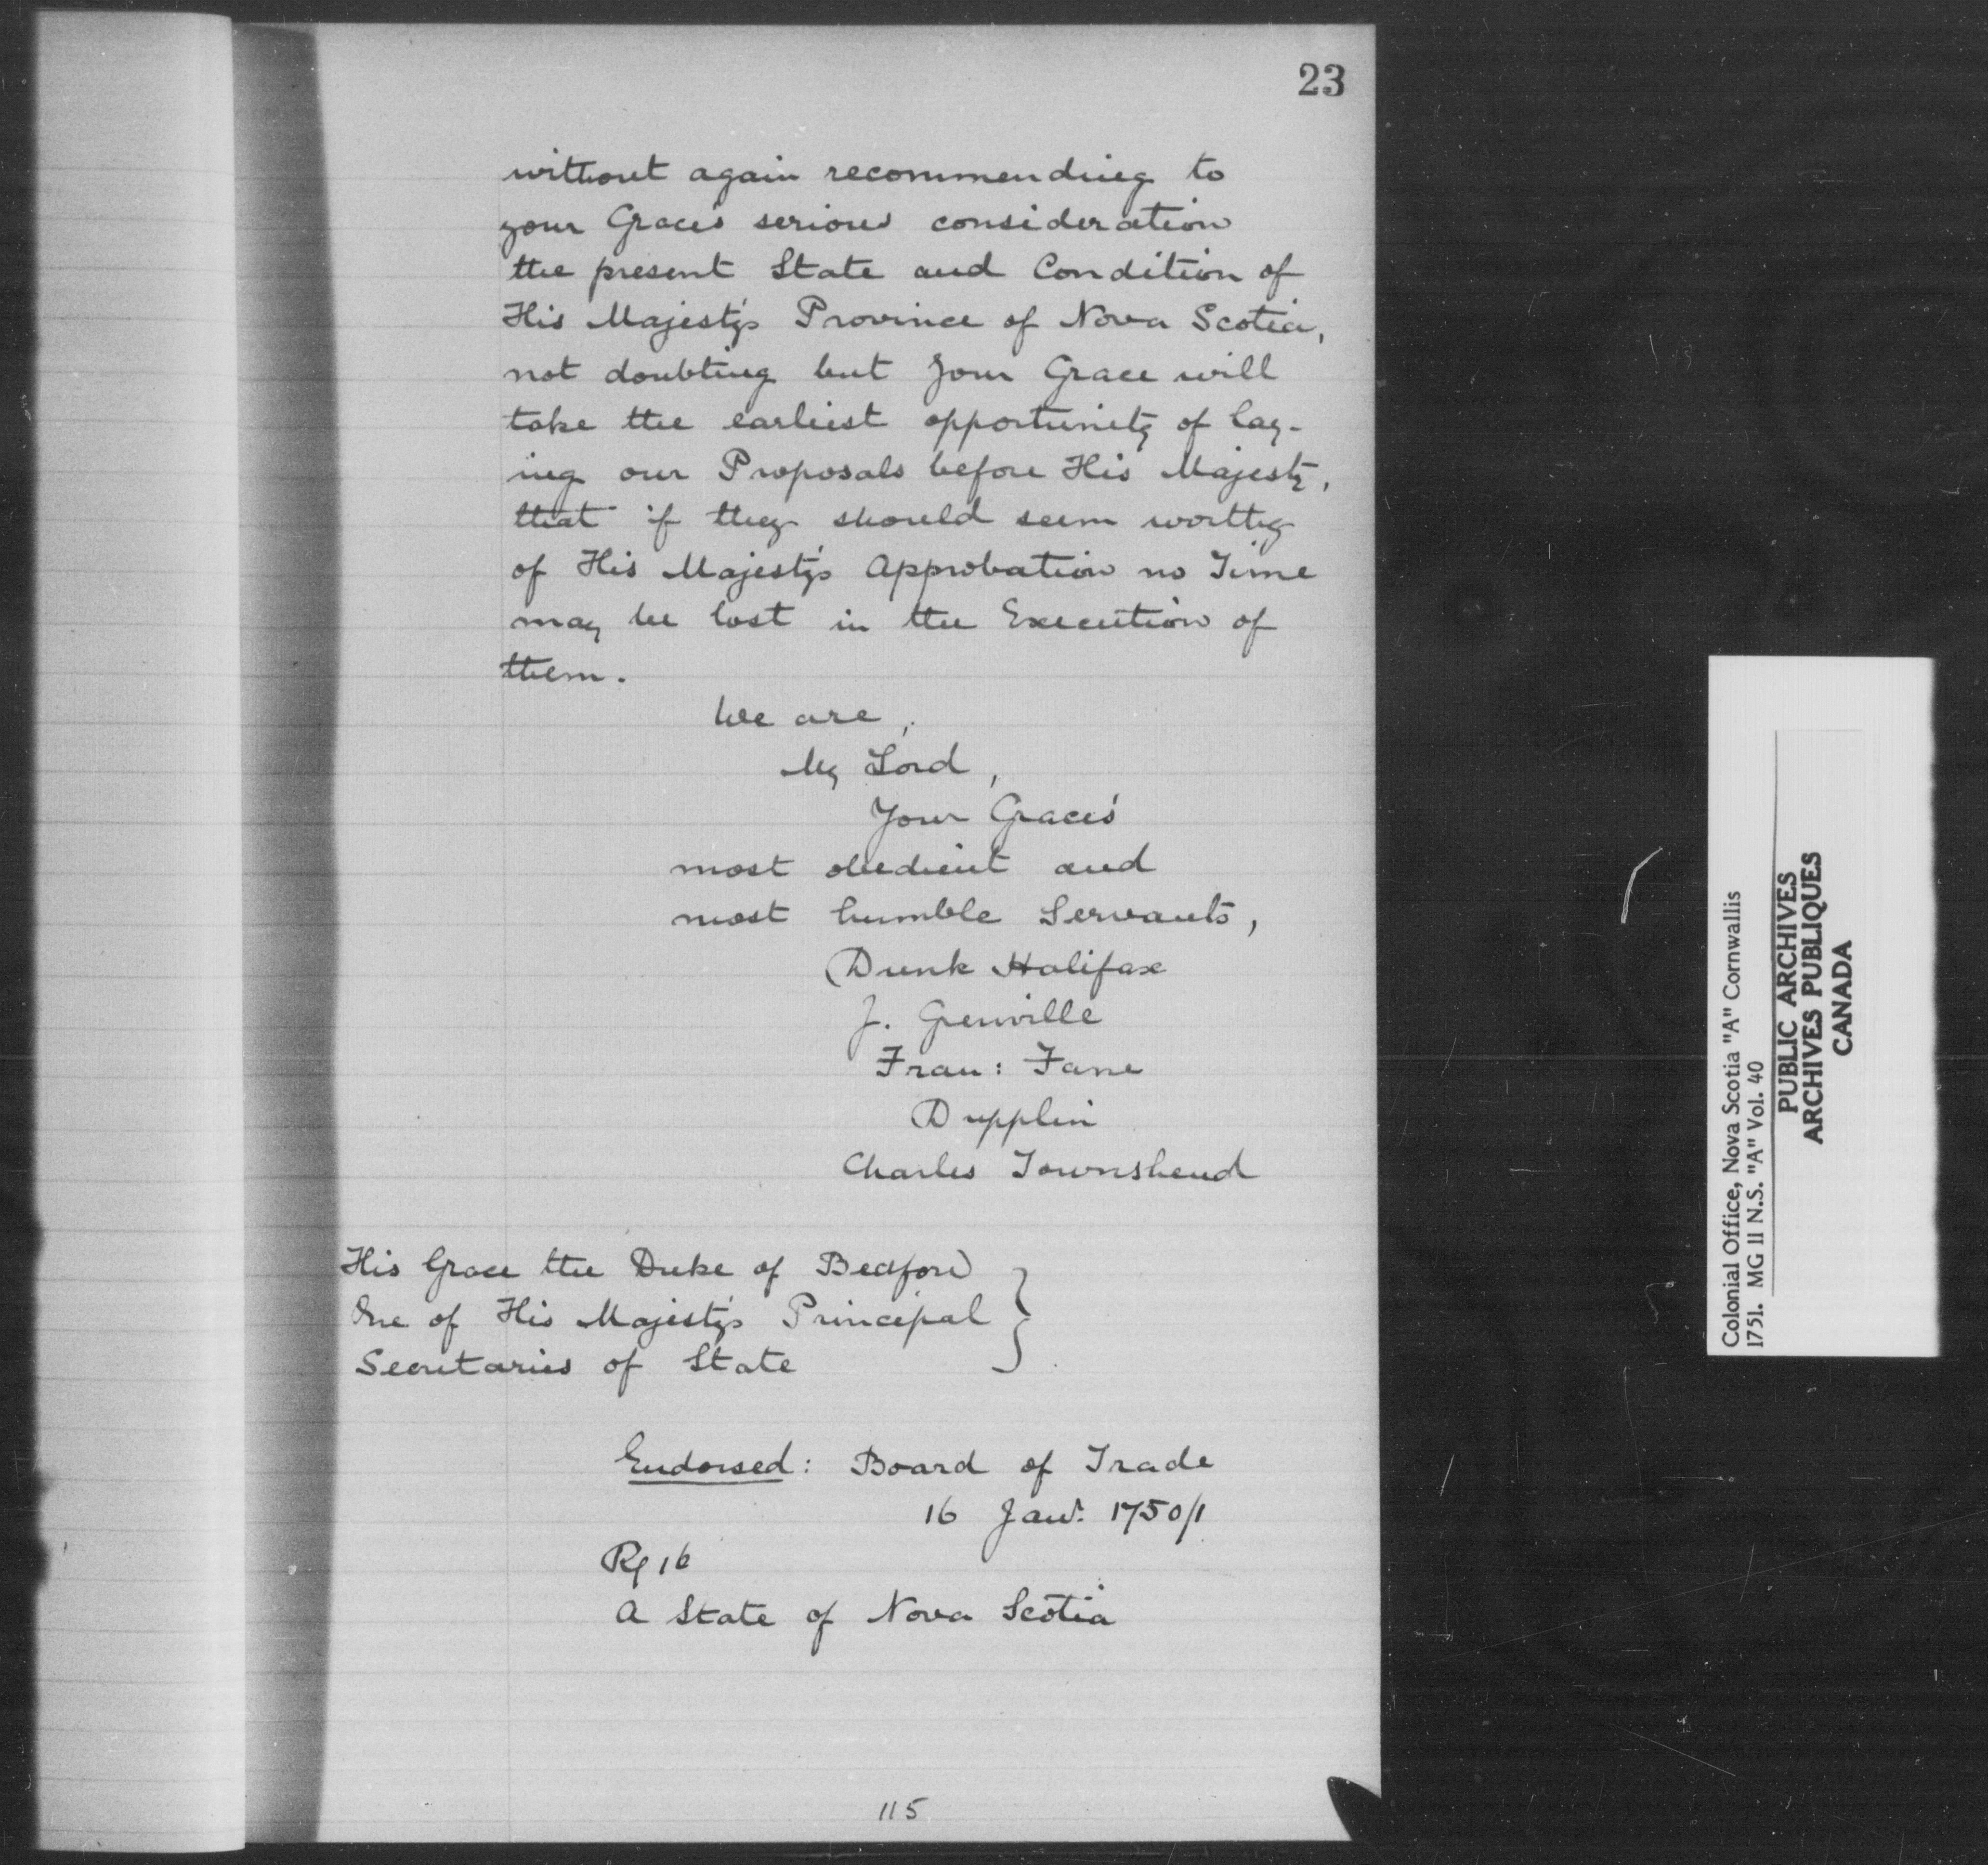 23
without again recommending to
your Grace's serious consideration
the present State and Condition of
His Majesty's Province of Nova Scotia,
not doubting but Your Grace will
take the earliest opportunity of lay-
ing our Proposals before His Majesty,
that if they should seem worthy
of His Majesty's Approbation no Time
may be lost in the Execution of
them.
We are,
My Lord,
Your Grace's
most obedient and
most humble Servants,
Dunk Halifax
J. Grenville
Fran: Fane
Dupplin
Charles Townshend
His Grace the Duke of Bedford
One of His Majesty's Principal
Secretaries of State
Endorsed: Board of Trade
16 Janr. 1750/1
16
A State of Nova Scotia
115
Colonial Office, Nova Scotia "A" Cornwallis
1751. MG 11 N.S. "A" Vol. 40
PUBLIC ARCHIVES
ARCHIVES PUBLIQUES
CANADA